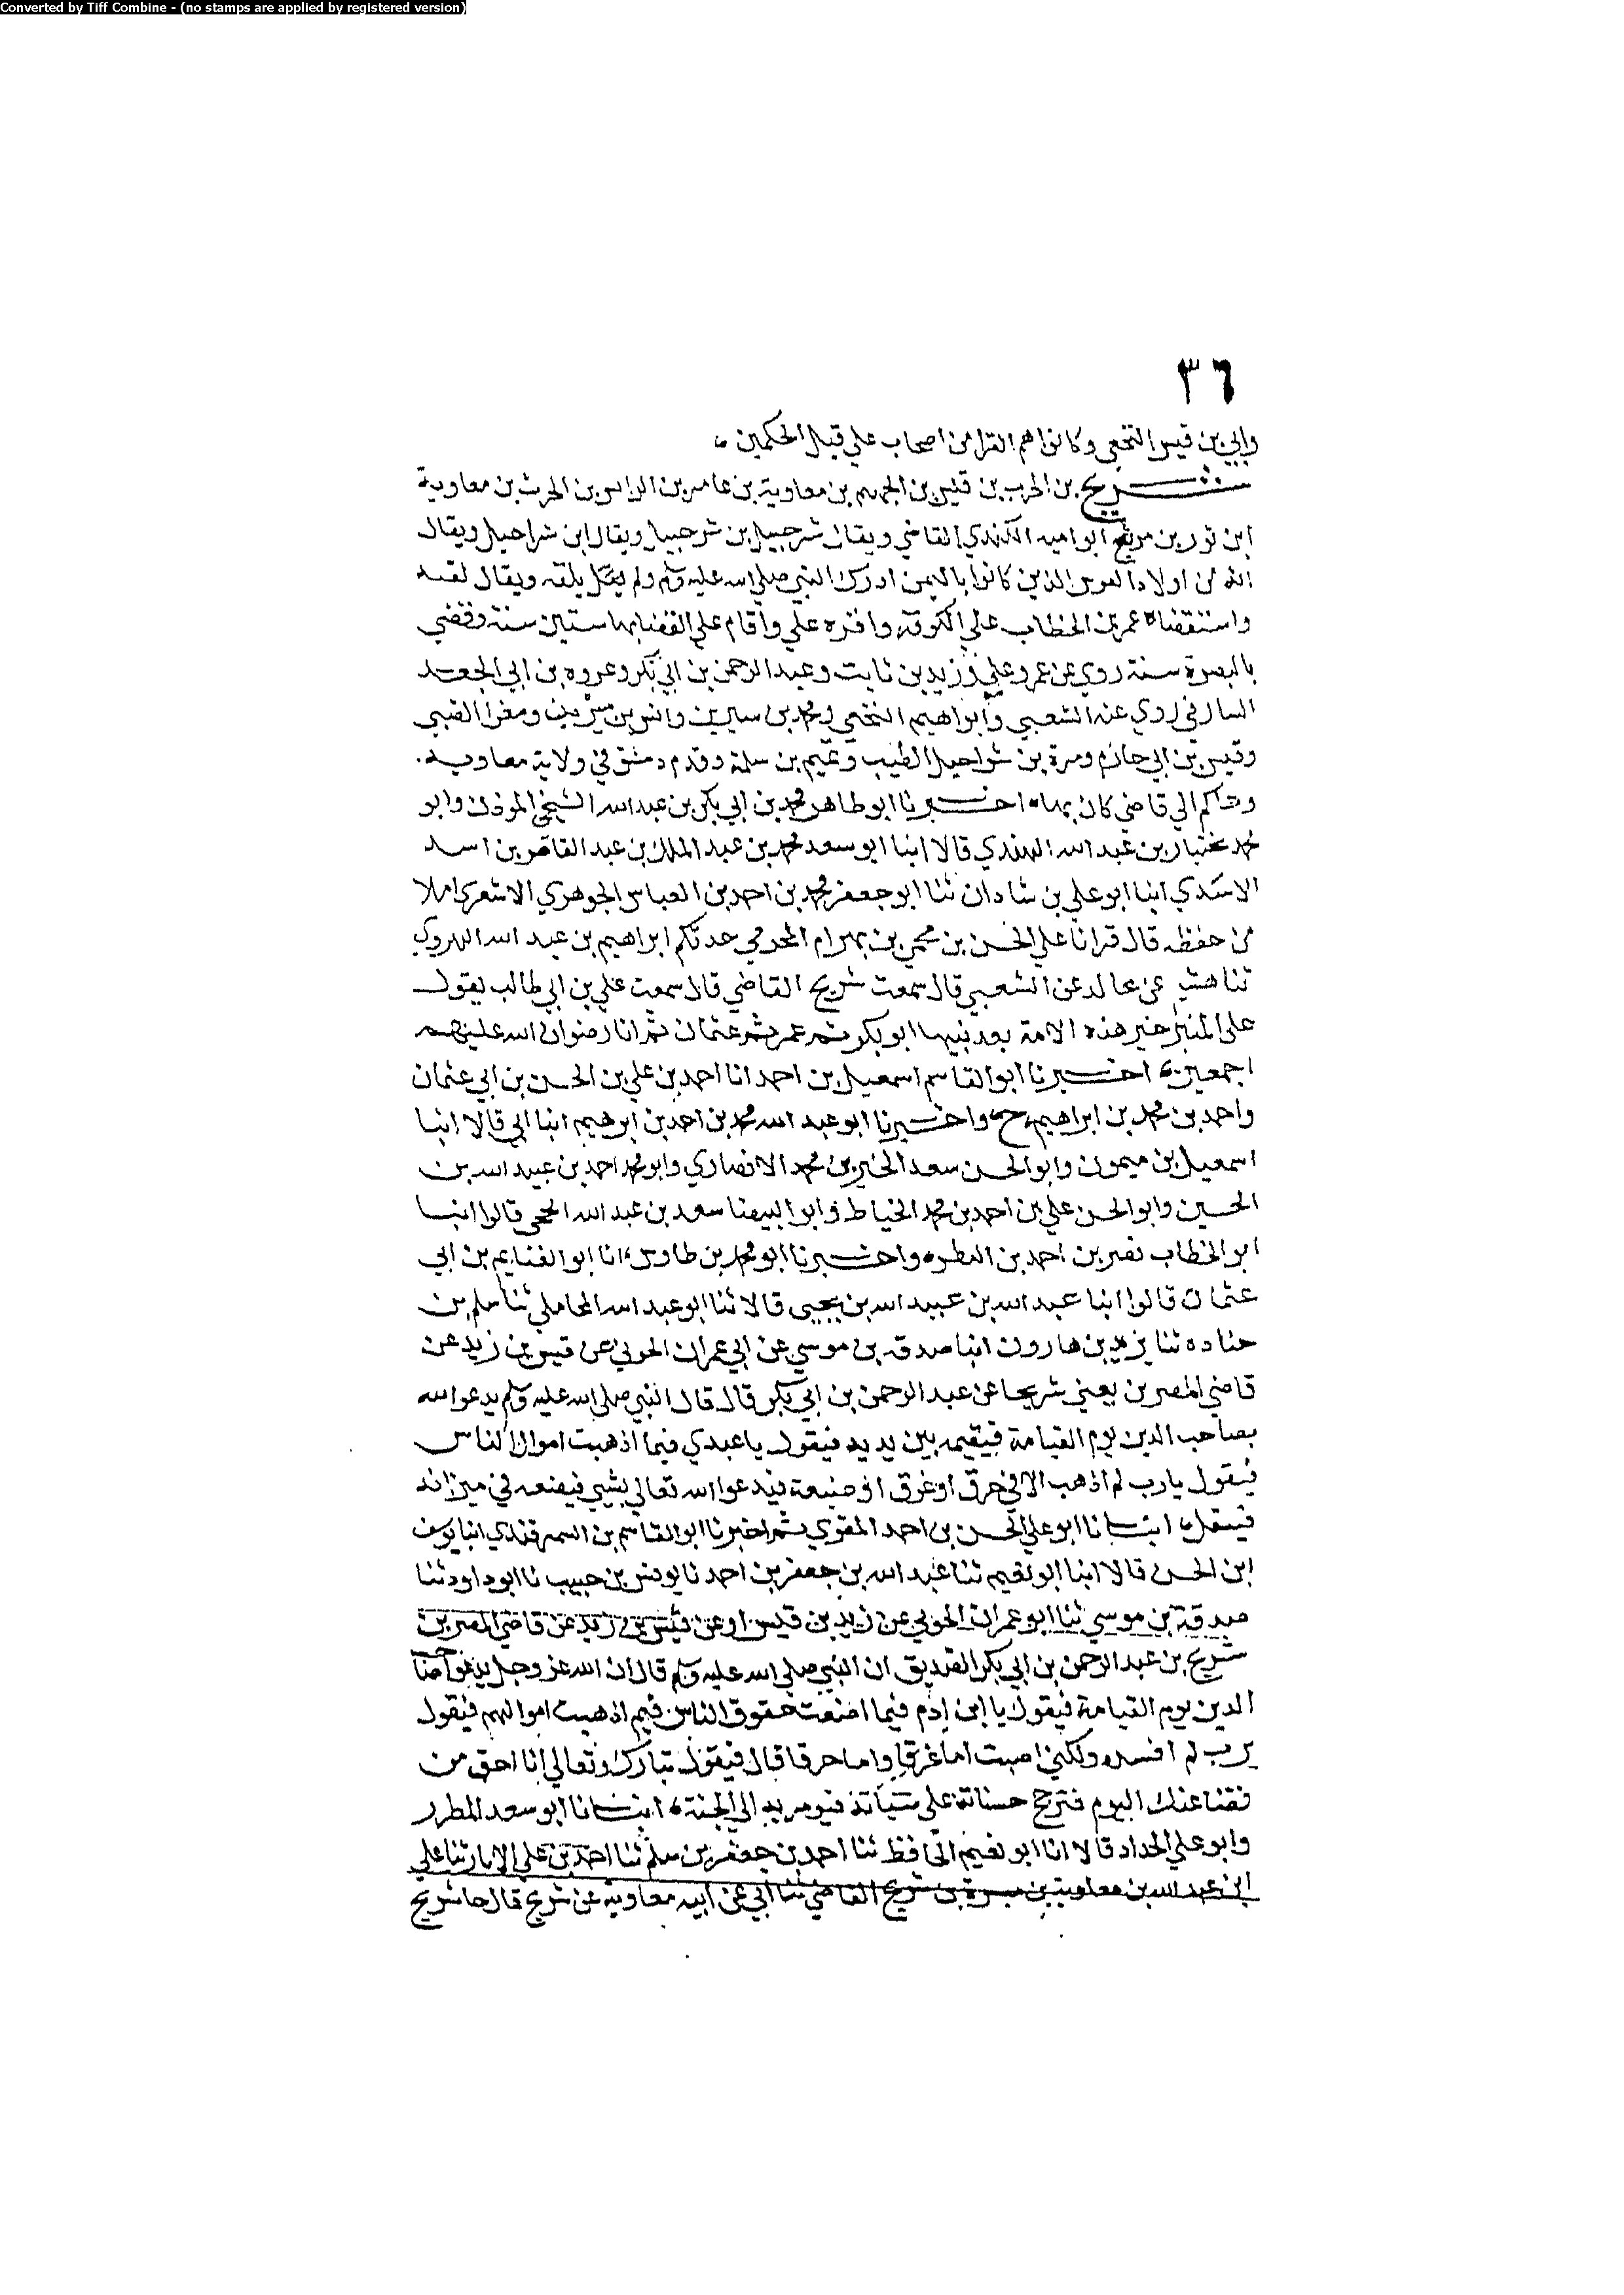 Converted by Tiff Combine - (no stamps are applied by registered version)
٣٦
وابي بن قيس النخعي وكانوا هم القرا من اصحاب علي قبل الحكمين
شريح بن الحرث بن قيس بن الجهم بن معاوية بن عامر بن الرايس بن الحرث بن معاوية
ابن ثور بن مرتع ابو اميه الكندي القاضي ويقال شرحبيل بن شرحبيل ويقال ابن شراحيل ويقال
انه من اولاد الفرس الذين كانوا باليمن ادرك النبي صلى الله عليه وسلم ولم يلقه ويقال لقيه
واستقضاه عمر بن الخطاب علي الكوفة واقره علي واقام علي القضا بها ستين سنة وقضي
بالبصرة سنة روي عن عمر وعلي وزيد بن ثابت وعبد الرحمن بن ابي بكر وعروه بن ابي الجعد
البارقي روي عنه الشعبي وابراهيم النخعي ومحمد بن سيرين وانس بن سيرين ومغرا الضبي
وقيس بن ابي حازم ومرة بن شراحيل الطيب وتميم بن سلمة وقدم دمشق في ولاية معاويه
وحاكم الي قاضي كان بها اخبرنا ابو طاهر محمد بن ابي بكر بن عبد الله الشيخي الموذن وابو
محمد بختيار بن عبد الله الهندي قالا انبا ابو سعد محمد بن عبد الملك بن عبد القاهر بن اسد
الاسدي انبا ابو علي بن شادان ثنا ابو جعفر محمد بن احمد بن العباس الجوهري الاشعري املا
من حفظه قال قرانا علي الحسن بن محمي بن بهرام المخرمي حدثكم ابراهيم بن عبد الله الهروي
ثنا هشيم عن مجالد عن الشعبي قال سمعت شريح القاضي قال سمعت علي بن ابي طالب يقول
على المنبر خير هذه الامة بعد نبيها ابو بكر ثم عمر ثم عثمان ثم انا رضوان الله عليهم
اجمعين اخبرنا ابو القاسم اسمعيل بن احمد انا احمد بن علي بن الحسن بن ابي عثمان
واحمد بن محمد بن ابراهيم ح واخبرنا ابو عبد الله محمد بن احمد بن ابرهيم انبا ابي قالا انبا
اسمعيل بن ميمون وابو الحسن سعد الخير بن محمد الانصاري وابو محمد احمد بن عبيد الله بن
الحسين وابو الحسن علي بن احمد بن محمد الخياط وابو البيضا سعد بن عبد الله قالوا انبا
ابو الخطاب نصر بن احمد بن البطره واخبرنا ابو محمد بن طاوس انا ابو الغنايم بن ابي
عثمان قالوا انبا عبد الله بن عبيد الله بن يحيى قالا ثنا ابو عبد الله المحاملي ثنا سلم بن
جناده ثنا يزيد بن هارون انبا صدقه بن موسي عن ابي عمران الجوني عن قيس بن زيد عن
قاضي المصرين يعني شريحا عن عبد الرحمن بن ابي بكر قال قال النبي صلى الله عليه وسلم يدعوا الله
بصاحب الدين يوم القيامة فيقيمه بين يديه فيقول يا عبدي فيما اذهبت اموال الناس
فيقول يا رب لم اذهب الا في حرق او غرق او ضيعة فيدعوا الله تعالى بشيي فيضعه في ميزانه
فيثقل انبانا ابو علي الحسن بن احمد المقري ثم اخبرنا ابو القاسم بن السمرقندي انبا يوسف
ابن الحسن قالا انبا ابو نعيم ثنا عبد الله بن جعفر بن احمد نا يونس بن حبيب نا ابو داود ثنا
صدقة بن موسي ثنا ابو عمران الجوني عن زيد بن قيس او عن قيس بن زيد عن قاضي المصرين
شريح بن عبد الرحمن بن ابي بكر الصديق ان النبي صلى الله عليه وسلم قال ان الله عز وجل يدعوا صاحب
الدين يوم القيامة فيقول يا ابن ادم فيما اضعت حقوق الناس فيم اذهبت اموالهم فيقول
يرب لم افسده ولكني اصبت اما غرقا واما حرقا قال فيقول تبارك وتعالى انا احق من
قضا عنك اليوم فترجح حسناته على سيآته فيومر به الى الجنة انبانا ابو سعد المطرز
وابو علي الحداد قالا انا ابو نعيم الحافظ ثنا احمد بن جعفر بن سلم ثنا احمد بن علي الابار ثنا علي
ابن عبد الله بن معاوية بن ميسرة بن شريح القاضي ثنا ابي عن ابيه معاوية عن شريح قال جا شريح